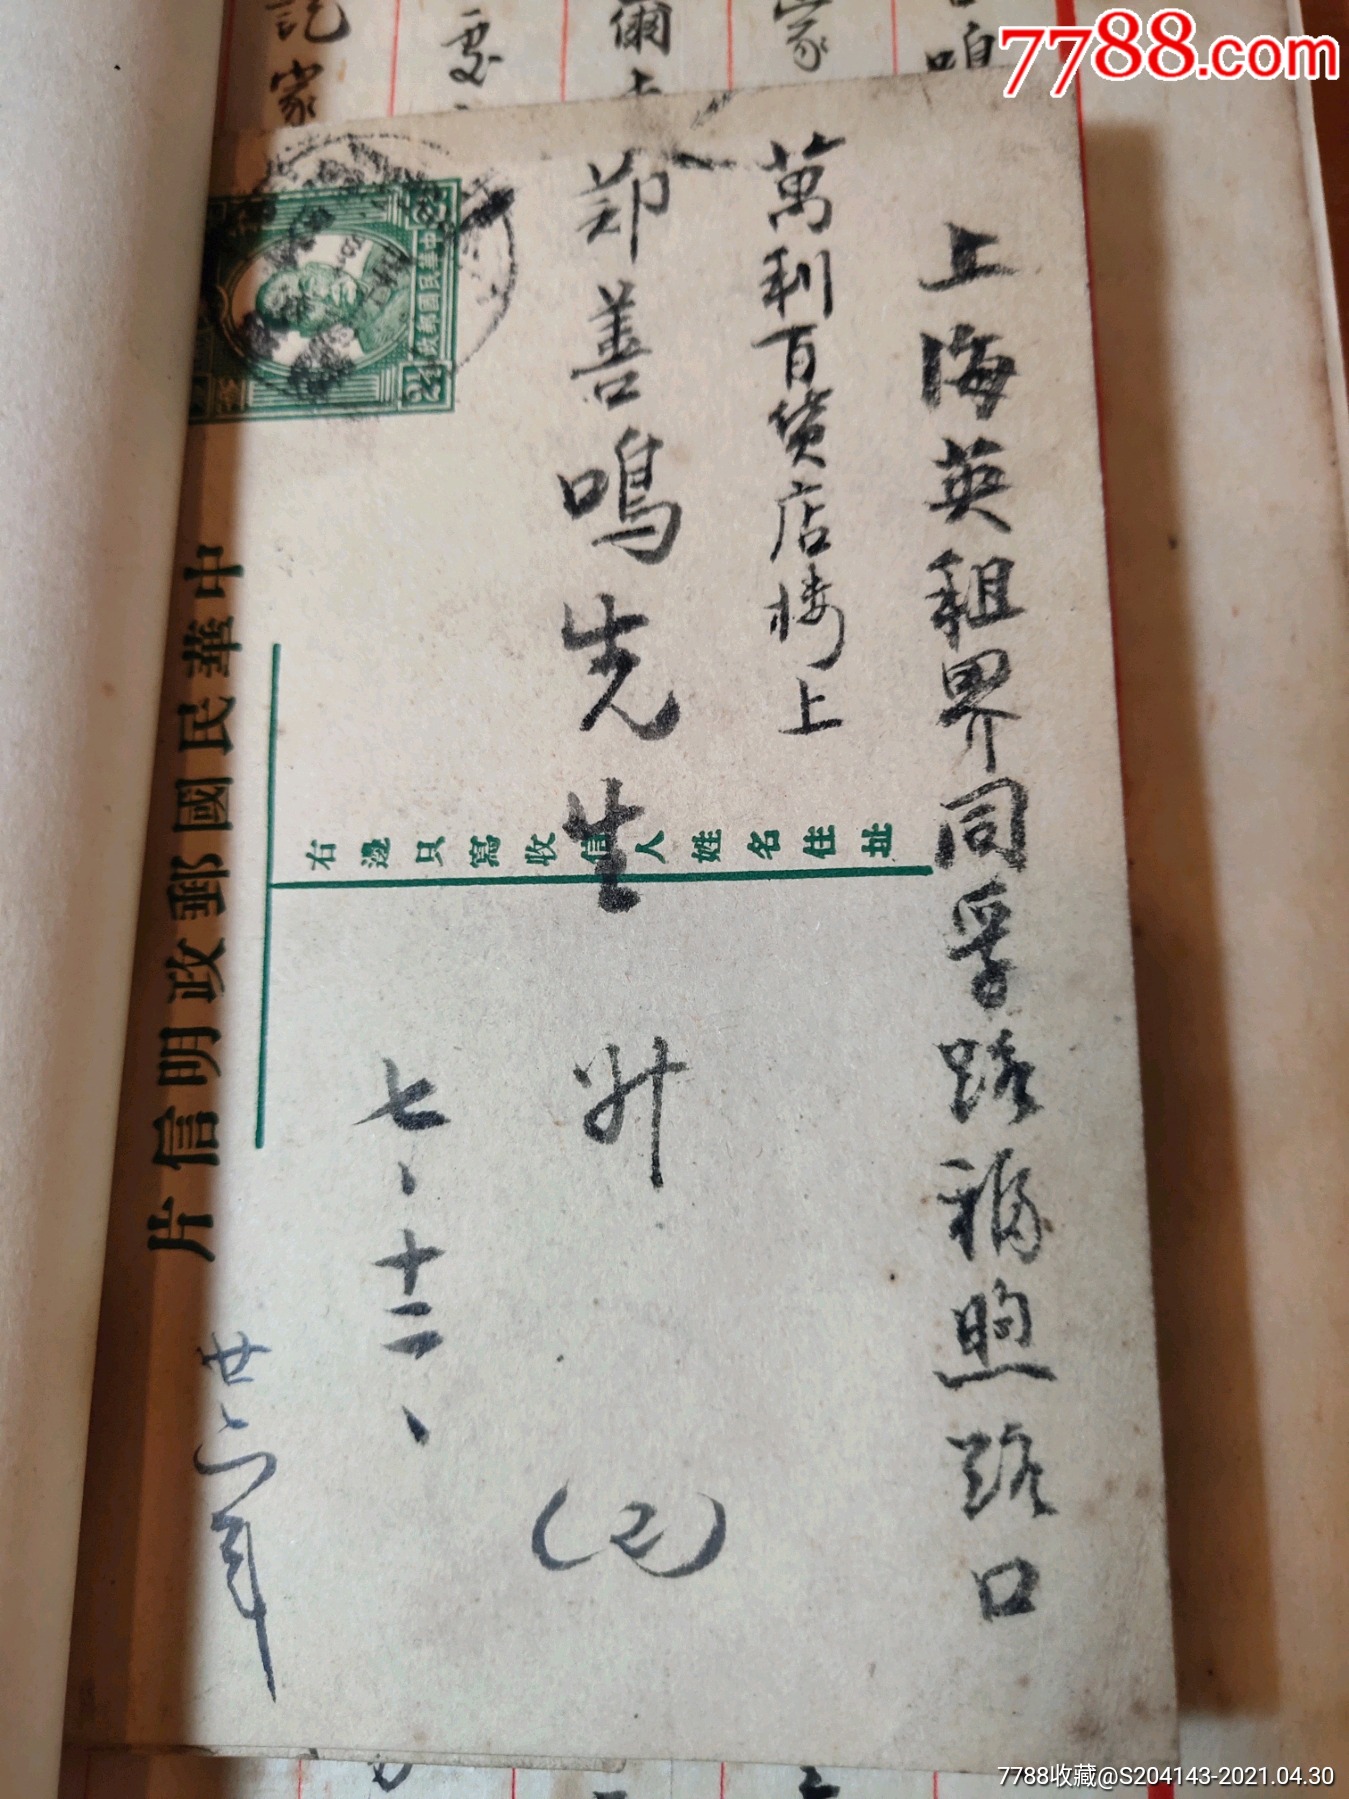 7788.com
上海英租界同孚路福煦路口
萬利百貨店楼上
郑善鳴先生 升
七、十二、
(2)
廿六年
中華民國郵政明信片
右邊只寫收信人姓名住址
中華民國郵政
2½
7788收藏@S204143-2021.04.30